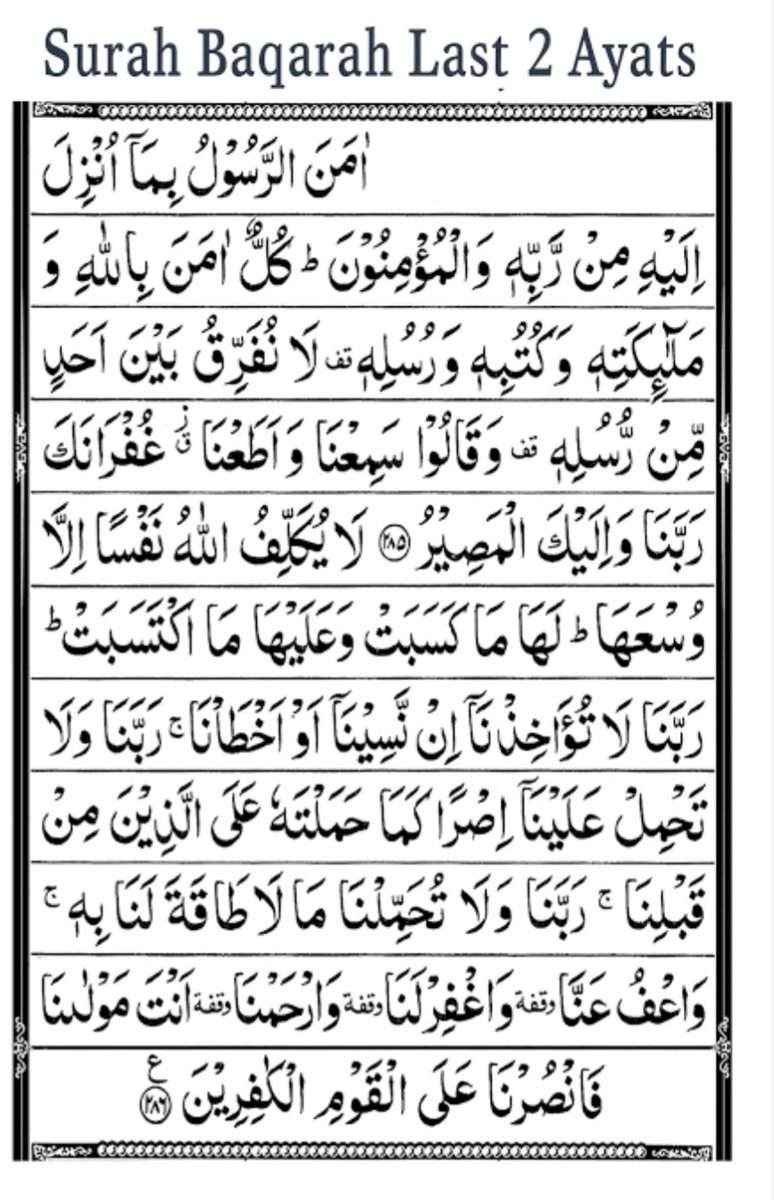 Surah Baqarah Last 2 Ayats
اٰمَنَ الرَّسُوْلُ بِمَاۤ اُنْزِلَ
اِلَيْهِ مِنْ رَّبِّهٖ وَالْمُؤْمِنُوْنَ ؕ كُلٌّ اٰمَنَ بِاللّٰهِ وَ
مَلٰٓئِكَتِهٖ وَكُتُبِهٖ وَرُسُلِهٖ قف لَا نُفَرِّقُ بَيْنَ اَحَدٍ
مِّنْ رُّسُلِهٖ قف وَقَالُوْا سَمِعْنَا وَاَطَعْنَا ق ز غُفْرَانَكَ
رَبَّنَا وَاِلَيْكَ الْمَصِيْرُ ﴿۲۸۵﴾ لَا يُكَلِّفُ اللّٰهُ نَفْسًا اِلَّا
وُسْعَهَا ؕ لَهَا مَا كَسَبَتْ وَعَلَيْهَا مَا اكْتَسَبَتْ ؕ
رَبَّنَا لَا تُؤَاخِذْنَاۤ اِنْ نَّسِيْنَاۤ اَوْ اَخْطَاْنَا ۚ رَبَّنَا وَلَا
تَحْمِلْ عَلَيْنَاۤ اِصْرًا كَمَا حَمَلْتَهٗ عَلَى الَّذِيْنَ مِنْ
قَبْلِنَا ۚ رَبَّنَا وَلَا تُحَمِّلْنَا مَا لَا طَاقَةَ لَنَا بِهٖ ۚ
وَاعْفُ عَنَّا وقفة وَاغْفِرْ لَنَا وقفة وَارْحَمْنَا وقفة اَنْتَ مَوْلٰىنَا
فَانْصُرْنَا عَلَى الْقَوْمِ الْكٰفِرِيْنَ ﴿۲۸۶﴾ ع